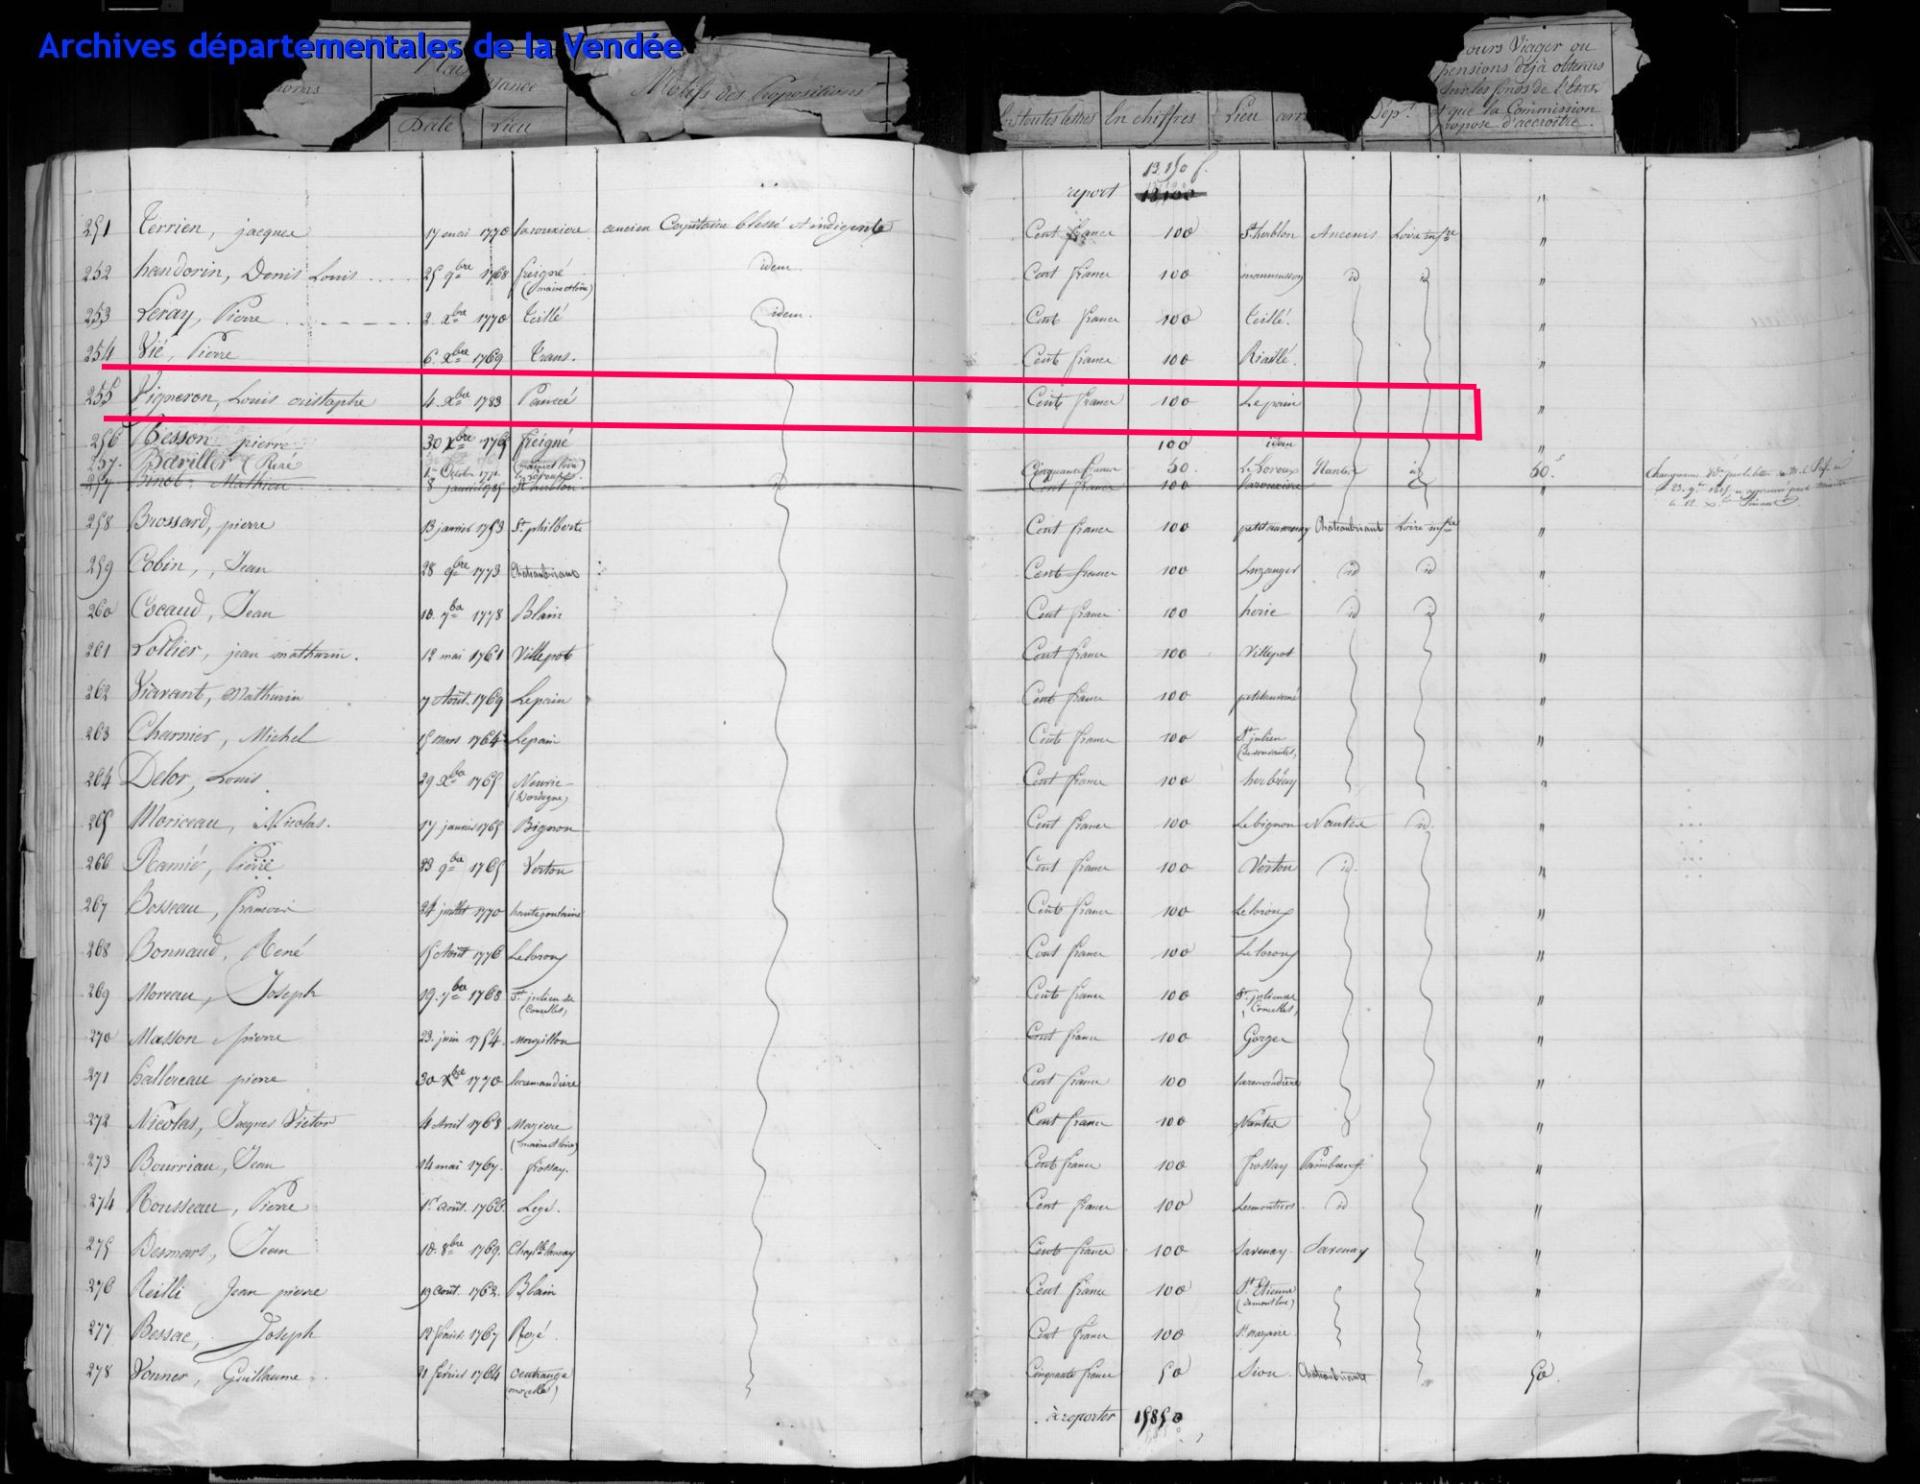 Archives départementales de la Vendée
noms
Naissance
Date Lieu
Motifs des Propositions
En toutes lettres En chiffres Lieu arr Dép.t
ours Viager ou
pensions déjà obtenus
sur les fonds de l'État
et que la Commission
propose d'accroître.
report 13,150 f.
13,100
251 Terrien, jacques 17 mai 1770 larouxiere ancien Capitaine blessé et indigente Cent francs 100 St herblon Ancenis Loire infre "
252 handorin, Denis Louis 25 9bre 1768 freigné (maine et loire) idem Cent francs 100 id id "
253 Leray, Pierre 2 Xbre 1770 Teillé idem. Cent francs 100 Teillé. "
254 Vié, Pierre 6 Xbre 1769 Trans. Cent francs 100 Riaillé. "
255 Vigneron, Louis cristophe 4 Xbre 1783 Pannecé Cent francs 100 Lepain "
256 Besson pierre 30 Xbre 1765 freigné (maine et loire) 100 idem "
257. Baviller (René 1er Octobre Cinquante francs 50. Le Loroux Nantes id 50.f
257 Binot Mathieu 8 janvier St herblon Cent francs 100 Larouxiere
258 Brossard, pierre 13 janvier 1753 St philberte Cent francs 100 Chateaubriant Loire infre "
259 Cobin, Jean 28 9bre 1773 Chateaubriant Cent francs 100 Luzanger id id "
260 Cocaud, Jean 10. 7bre 1778 Blain Cent francs 100 herie id id "
261 Lollier, jean mathurin. 12 mai 1761 Villepot Cent francs 100 Villepot "
262 Viavant, Mathurin 7 Août. 1769 Lepain Cent francs 100 "
263 Charnier, Michel 15 mars 1764 Lepain Cent francs 100 St julien "
264 Delor, Louis 29 Xbre 1765 (Dordogne) Cent francs 100 herbray "
265 Moriceau, Nicolas. 17 janvier 1765 Bignon Cent francs 100 Lebignon Nantes id "
266 Ramié, Pierre 23 9bre 1765 Verton Cent francs 100 Verton id. "
267 Bosseau, francois 24 juillet 1770 hautegoulaine Cent francs 100 Leloroux "
268 Bonnaud, René 15 Août 1776 Leloroux Cent francs 100 Leloroux "
269 Moreau, Joseph 19. 7bre 1768 St julien de (Concelles) Cent francs 100 St julien de (Concelles) "
270 Masson pierre 23. juin 1754 mouzillon Cent francs 100 Gorges "
271 hallereau pierre 30 Xbre 1770 laremaudiere Cent francs 100 laremaudiere "
272 Nicolas, Jacques Victor 4 Avril 1768 Maziere (maine et loire) Cent francs 100 Nantes "
273 Bourriau, Jean 14 mai 1767. frossay. Cent francs 100 frossay Paimboeuf "
274 Rousseau, Pierre 1er août. 1766 Legé. Cent francs 100 Lesmoutiers id "
275 Desmars, Jean 10. 8bre 1769. Cent francs 100 Savenay Savenay "
276 Reilli Jean pierre 19 août. 1762. Blain Cent francs 100 St Etienne (demontluc) "
277 Bessac, Joseph 12 février 1767 Rezé. Cent francs 100 St nazaire "
278 Vonner, Guillaume 21 février 1764 (moselle) Cinquante francs 50 Sion Chateaubriant 50.
à reporter 15850